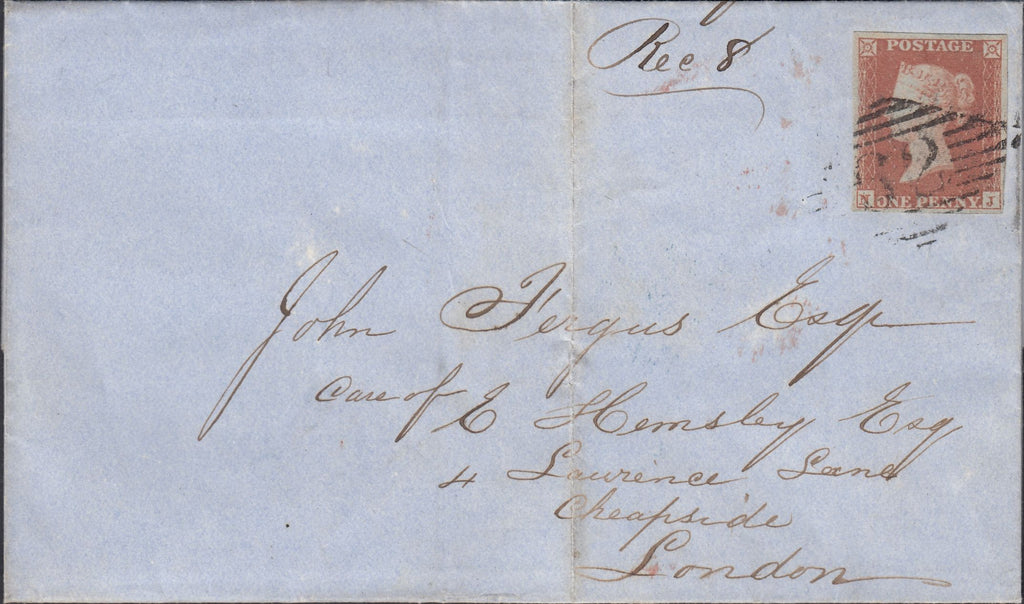 Rec 8
POSTAGE
ONE PENNY
N J
John Fergus Esq
Care of E Hemsley Esq
4 Lawrence Lane
Cheapside
London